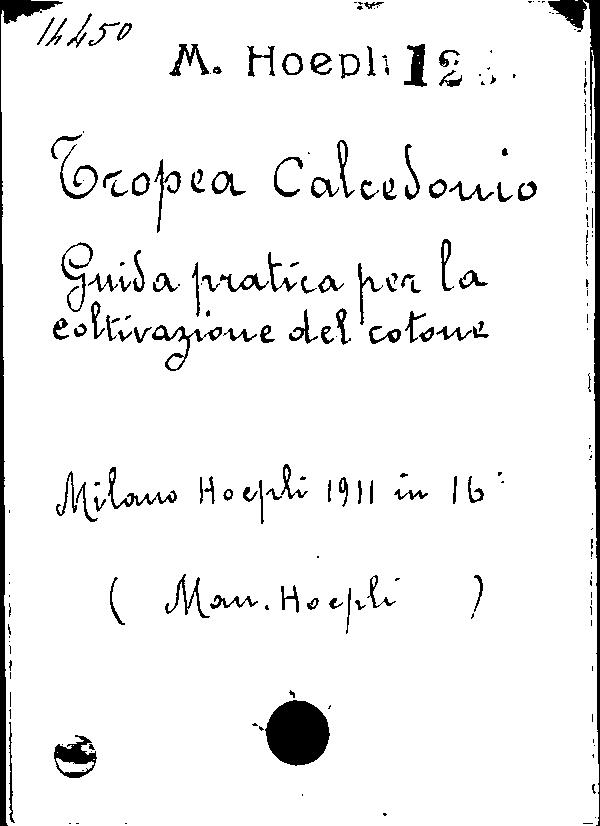 14450
M. Hoepli 12
Tropea Calcedonio
Guida pratica per la
coltivazione del cotone
Milano Hoepli 1911 in 16°
( Man. Hoepli )